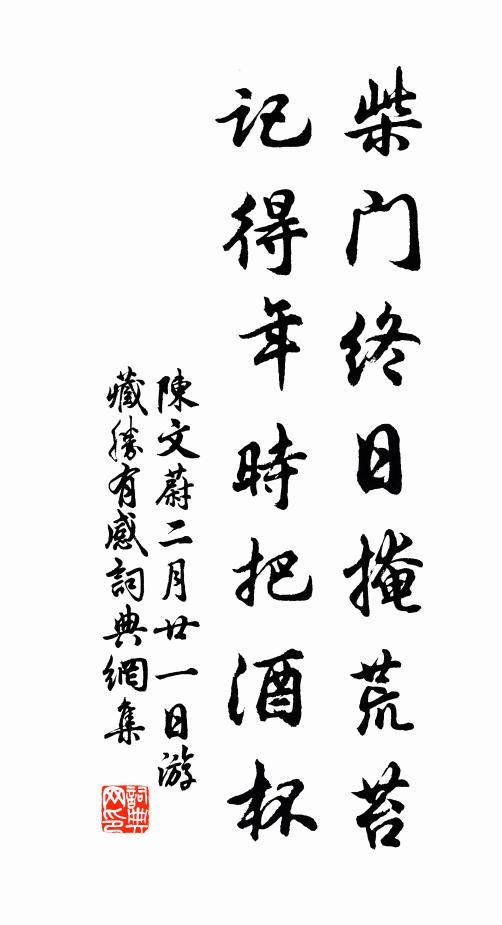 柴门终日掩荒苔
记得年時把酒杯
陳文蔚二月廿一日游
藏勝有感詞典網集
詞典网印